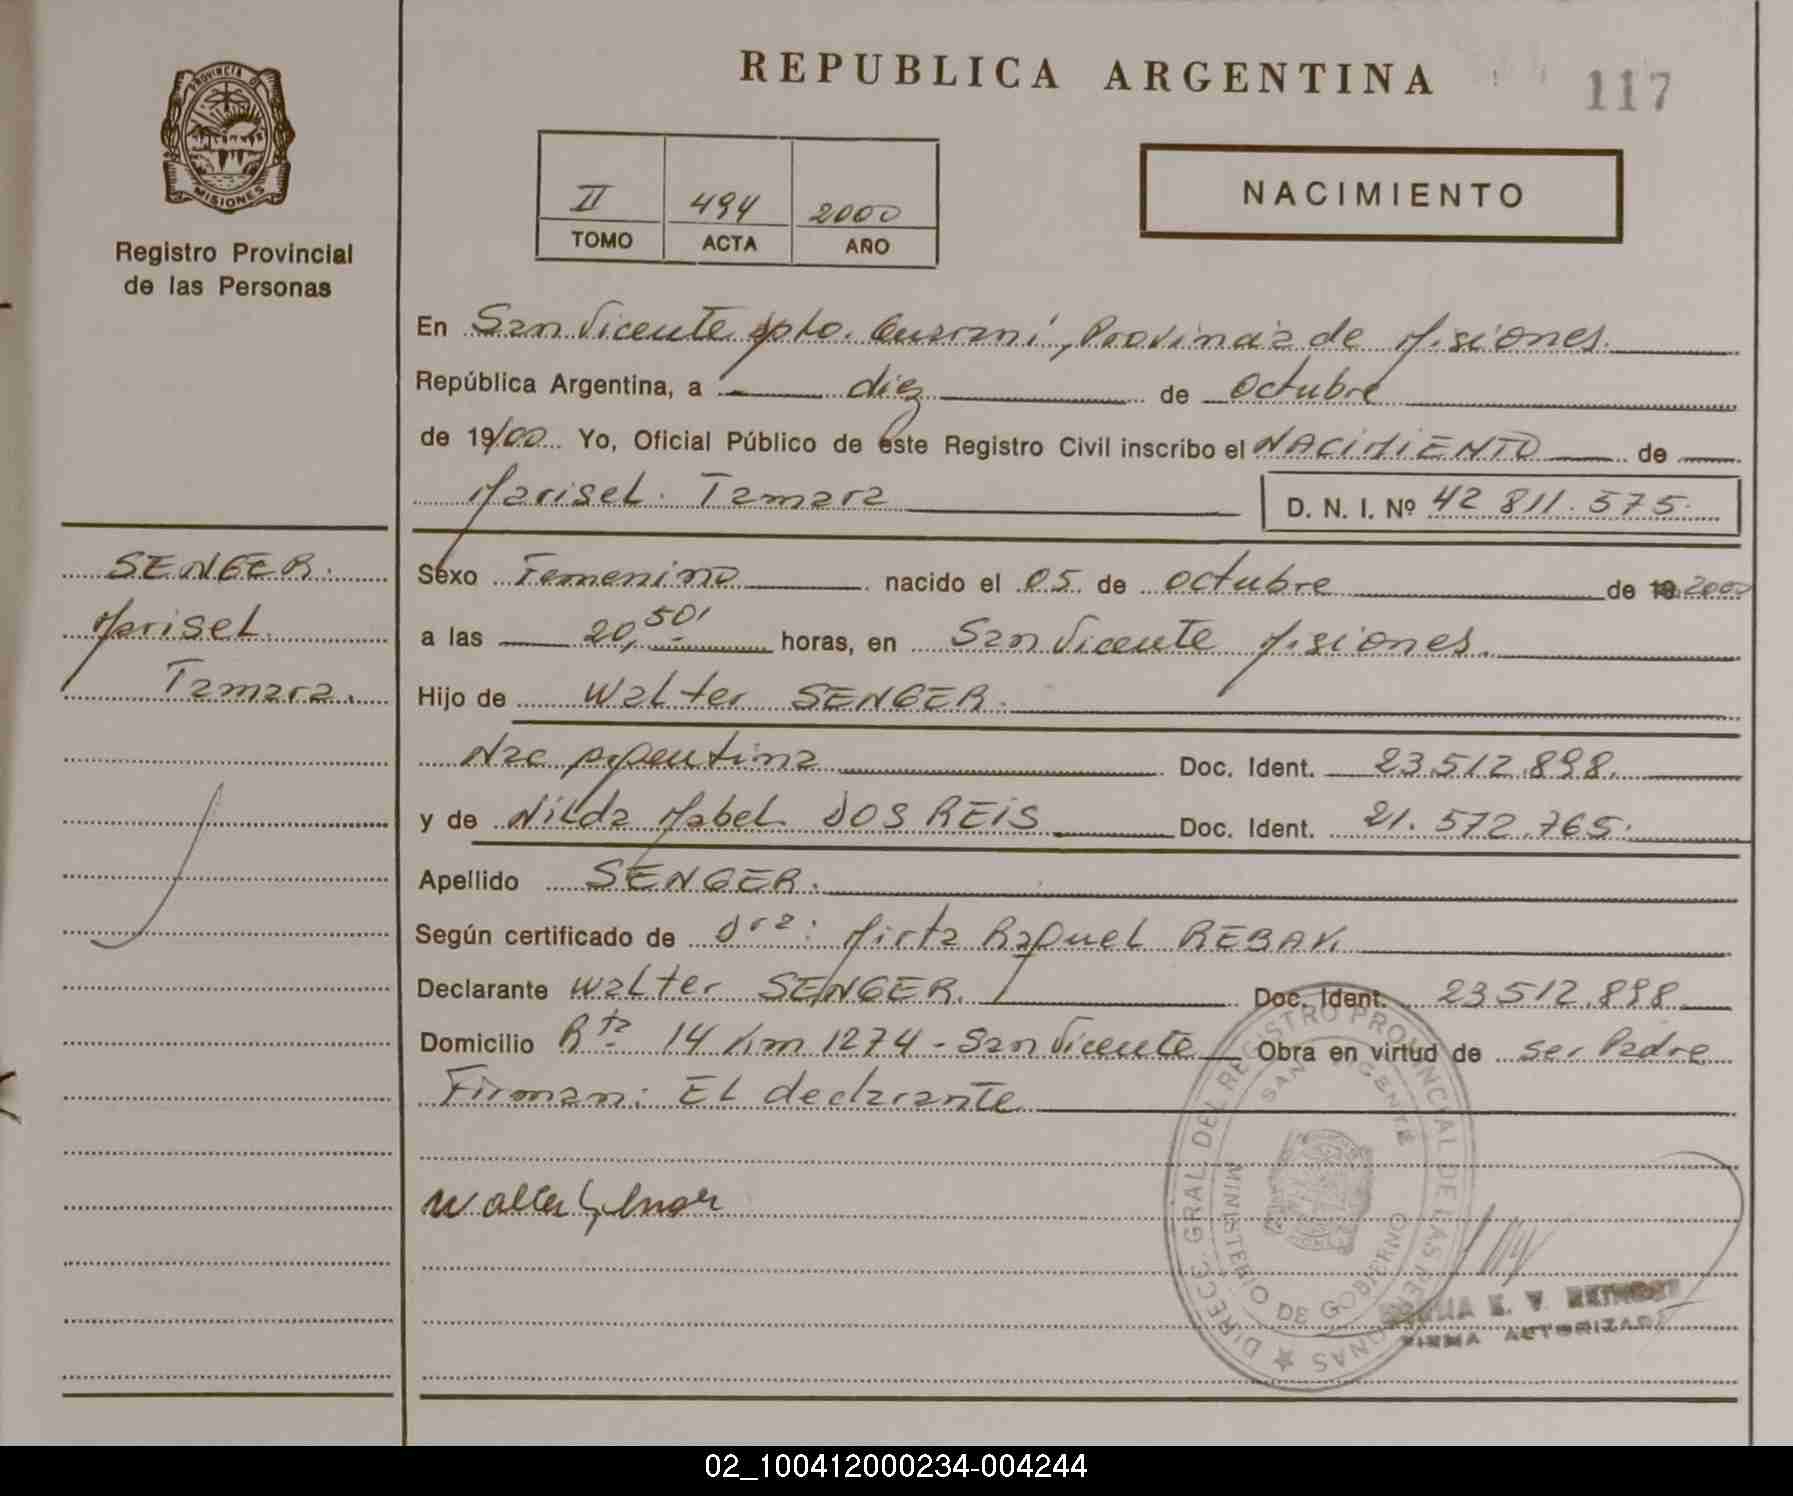 REPUBLICA ARGENTINA
117
PROVINCIA DE
MISIONES
Registro Provincial
de las Personas
II 494 2000
TOMO ACTA AÑO
NACIMIENTO
En San Vicente Dpto. Guaraní, Provincia de Misiones.
República Argentina, a diez de Octubre
de 19/00 Yo, Oficial Público de este Registro Civil inscribo el NACIMIENTO de
Marisel Tamara
D. N. I. Nº 42 811.575.
SENGER.
Marisel
Tamara.
Sexo Femenino nacido el 05 de octubre de 19 2000
a las 20,50' horas, en San Vicente Misiones.
Hijo de Walter SENGER.
Nac Argentina Doc. Ident. 23.512.898.
y de Nilda Mabel DOS REIS Doc. Ident. 21.572.765.
Apellido SENGER.
Según certificado de Dra: Mirta Raquel REBAK.
Declarante Walter SENGER. Doc. Ident. 23512.898
Domicilio Rta 14 Km 1274 - San Vicente Obra en virtud de ser Padre
Firman: El declarante
Walter Senger
DIRECC. GRAL. DEL REGISTRO PROVINCIAL DE LAS PERSONAS
SAN VICENTE
MINISTERIO DE GOBIERNO
E. V.
FIRMA AUTORIZADA
02_100412000234-004244